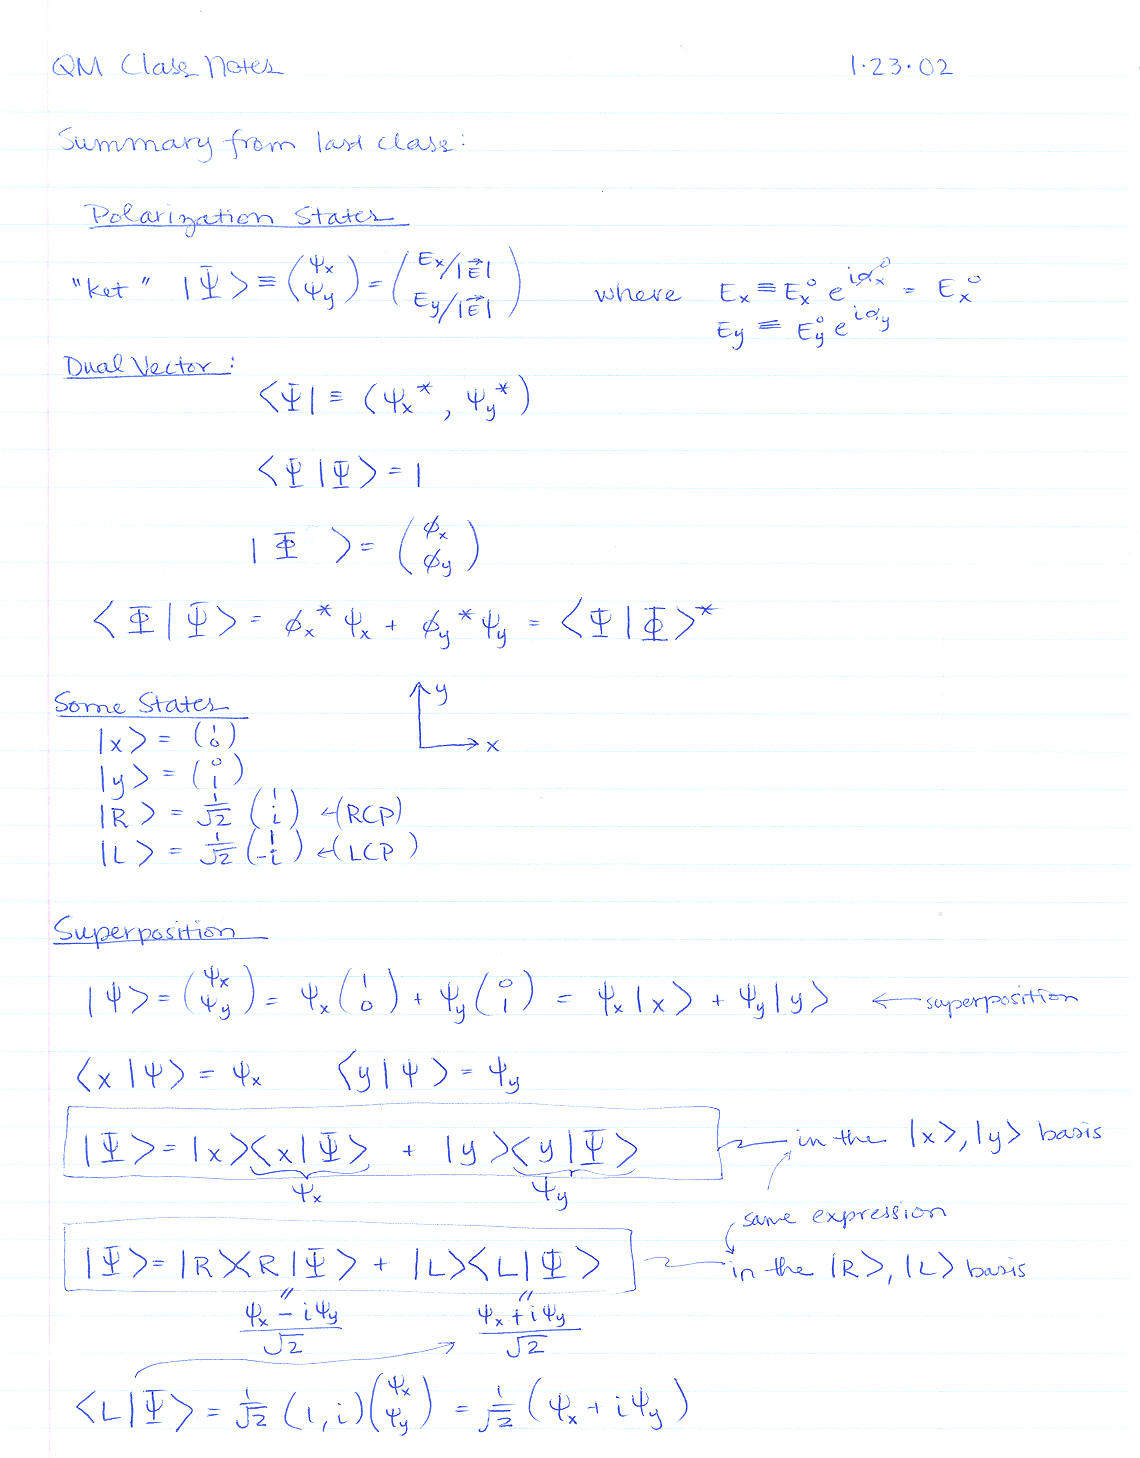 QM Class Notes 1·23·02
Summary from last class:
Polarization States
"Ket" |Ψ> ≡ (Ψx Ψy) = (Ex/|E⃗| Ey/|E⃗|) where Ex ≡ Ex° e^{iαx}^0 = Ex°
Ey ≡ Ey° e^{iαy}
Dual Vector:
<Ψ| ≡ (Ψx*, Ψy*)
<Ψ|Ψ> = 1
|Φ > = (ϕx ϕy)
<Φ|Ψ> = ϕx* Ψx + ϕy* Ψy = <Ψ|Φ>*
Some States
y
x
|x> = (1 0)
|y> = (0 1)
|R> = 1/√2 (1 i) ←(RCP)
|L> = 1/√2 (1 -i) ←(LCP)
Superposition
|Ψ> = (Ψx Ψy) = Ψx (1 0) + Ψy (0 1) = Ψx|x> + Ψy|y> ← superposition
<x|Ψ> = Ψx <y|Ψ> = Ψy
|Ψ> = |x><x|Ψ> + |y><y|Ψ> in the |x>, |y> basis
Ψx Ψy
same expression
|Ψ> = |R><R|Ψ> + |L><L|Ψ> in the |R>, |L> basis
" "
(Ψx - iΨy)/√2 (Ψx + iΨy)/√2
<L|Ψ> = 1/√2 (1, i)(Ψx Ψy) = 1/√2 (Ψx + iΨy)